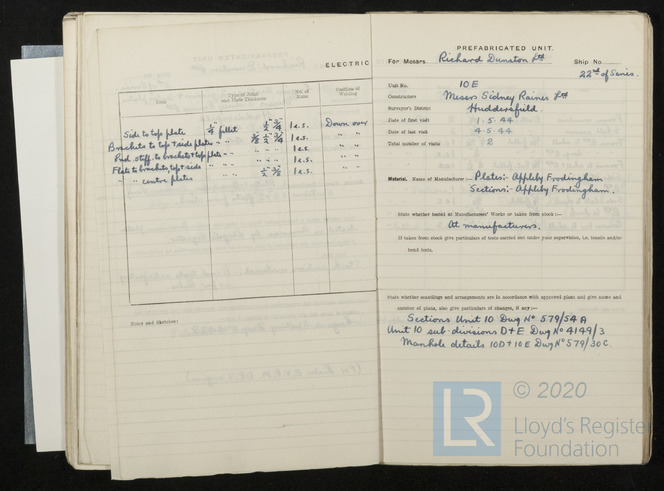 ELECTRIC
Item
Type of Joint and Plate Thickness
No. of Runs
Position of Welding
Side to top plate 1/4" fillet 1/2" 3/4" 1 e.s. Down over
Brackets to top + side plates " " 3/8" 1/2" 3/4" 1 e.s. " "
Rad. stiff. to brackets + top plate " " " " " 1 e.s. " "
Flat to brackets, top + side " " " " " 1 e.s. " "
" " centre plates " " 1/2" 3/4" 1 e.s. " "
Notes and Sketches:
PREFABRICATED UNIT.
For Messrs. Richard Dunston Ltd Ship No.
22nd of Series.
Unit No. 10E
Constructors Messrs Sidney Raines Ltd
Surveyor's District Huddersfield.
Date of first visit 1.5.44
Date of last visit 4.5.44
Total number of visits 2
Material. Name of Manufacturer:— Plates:- Appleby Frodingham
Sections:- Appleby Frodingham.
State whether tested at Manufacturers' Works or taken from stock:—
At manufacturers.
If taken from stock give particulars of tests carried out under your supervision, i.e. tensile and/or
bend tests.
State whether scantlings and arrangements are in accordance with approved plans and give name and
number of plans, also give particulars of changes, if any:—
Sections Unit 10 Dwg No 579/54 A
Unit 10 sub-divisions D+E Dwg No 4149/3
Manhole details 10D+10E Dwg No 579/30C.
LR
© 2020
Lloyd's Register
Foundation